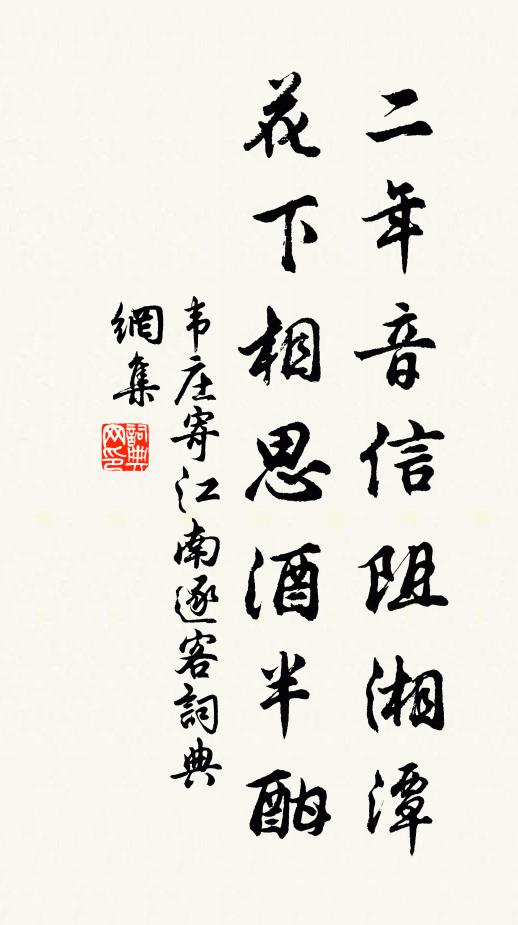 二年音信阻湘潭
花下相思酒半酣
韦庄寄江南逐客詞典
網集
詞典网印